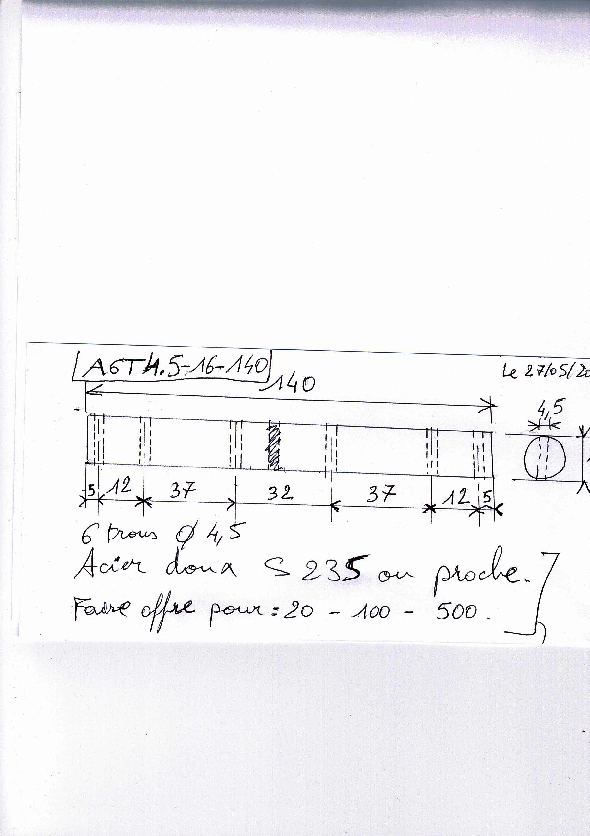 A6T4.5-16-140
Le 27/05/20
140
4,5
5 12 37 32 37 12 5
6 trous Ø 4,5
Acier doux S 235 ou proche.
Faire offre pour : 20 - 100 - 500.